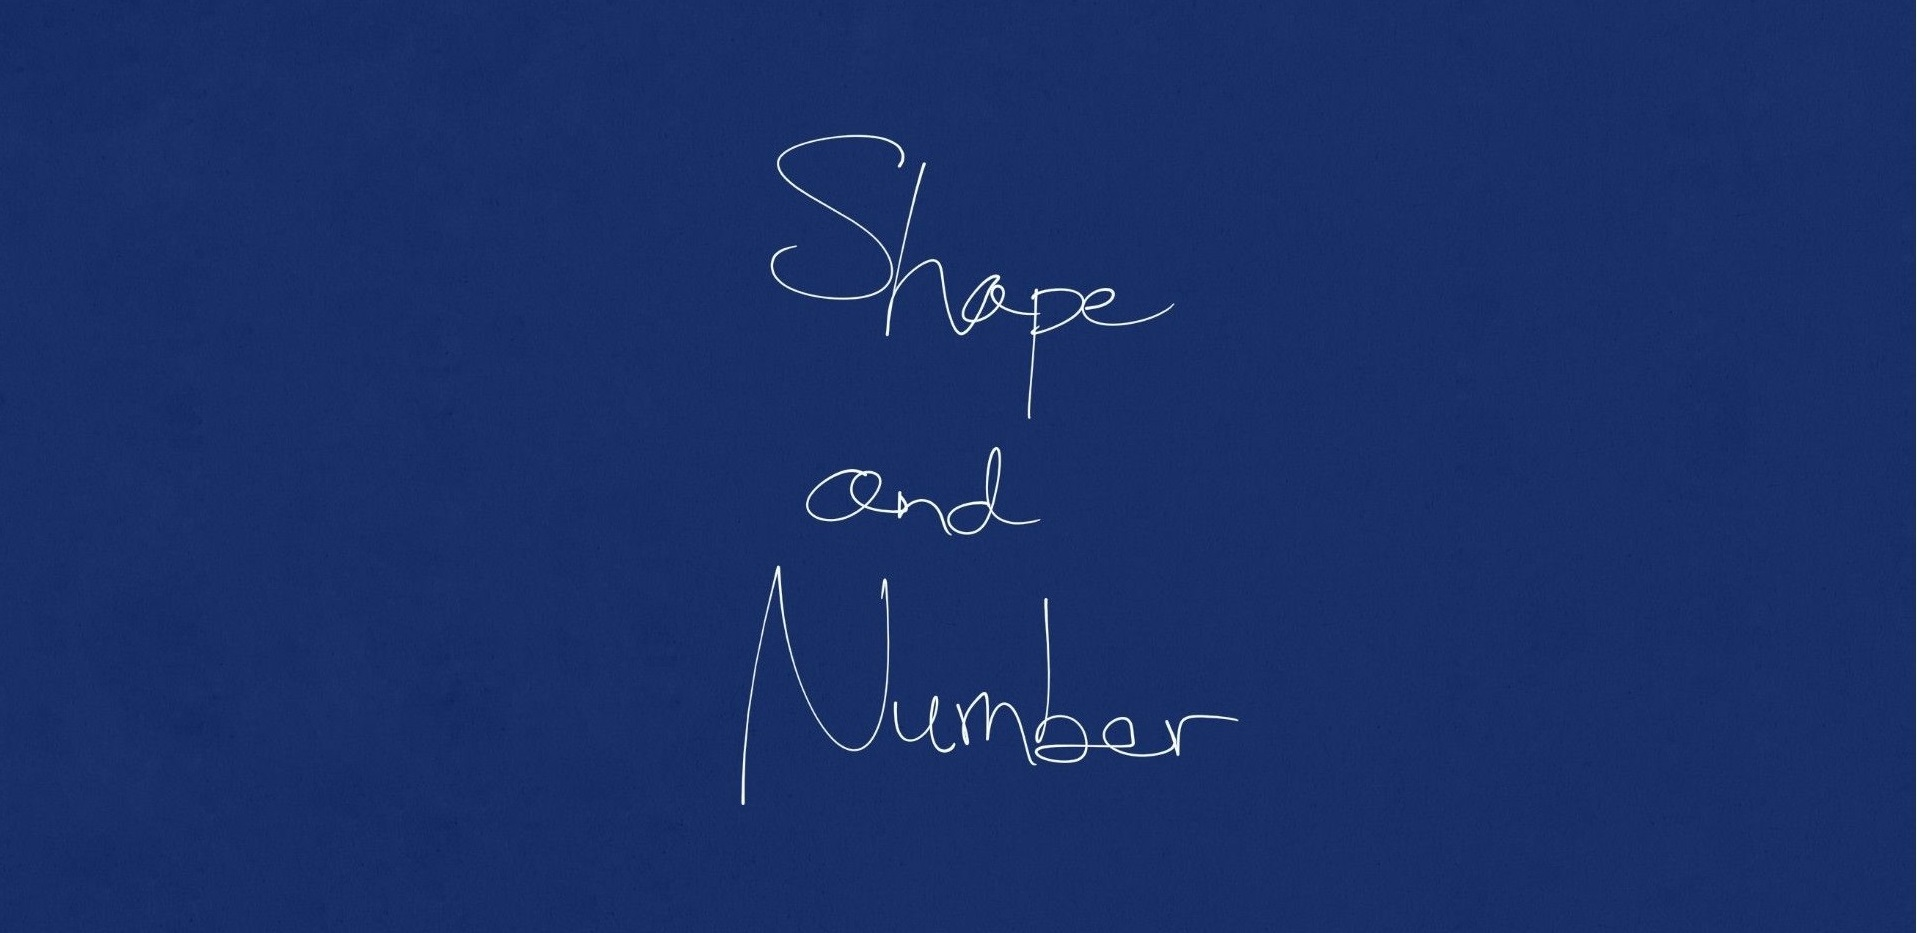 Shape
and
Number